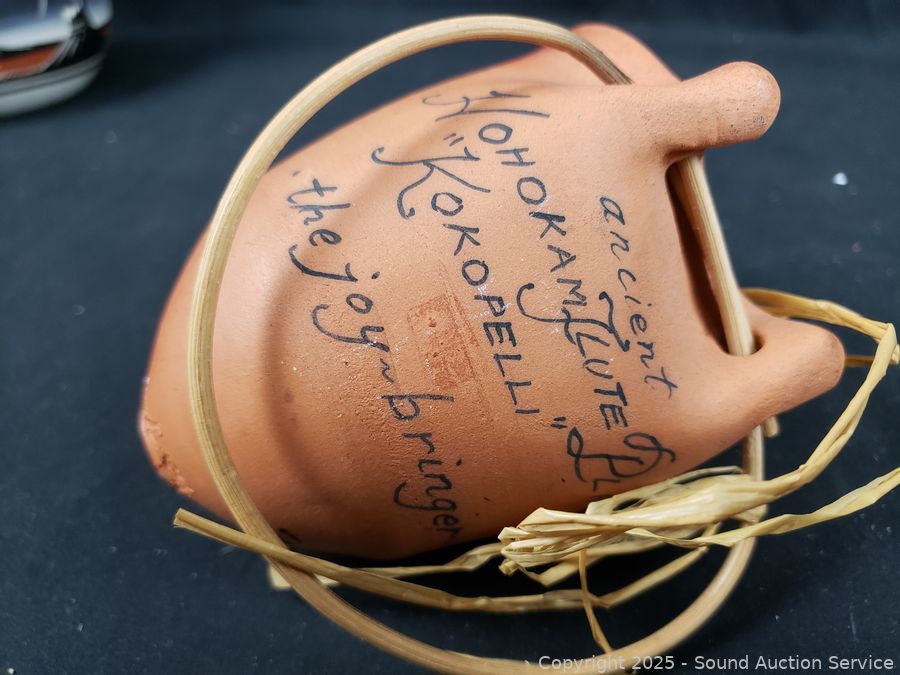 ancient
HOHOKAM FLUTE
"KOKOPELLI"
the joy~bringer
Copyright 2025 - Sound Auction Service